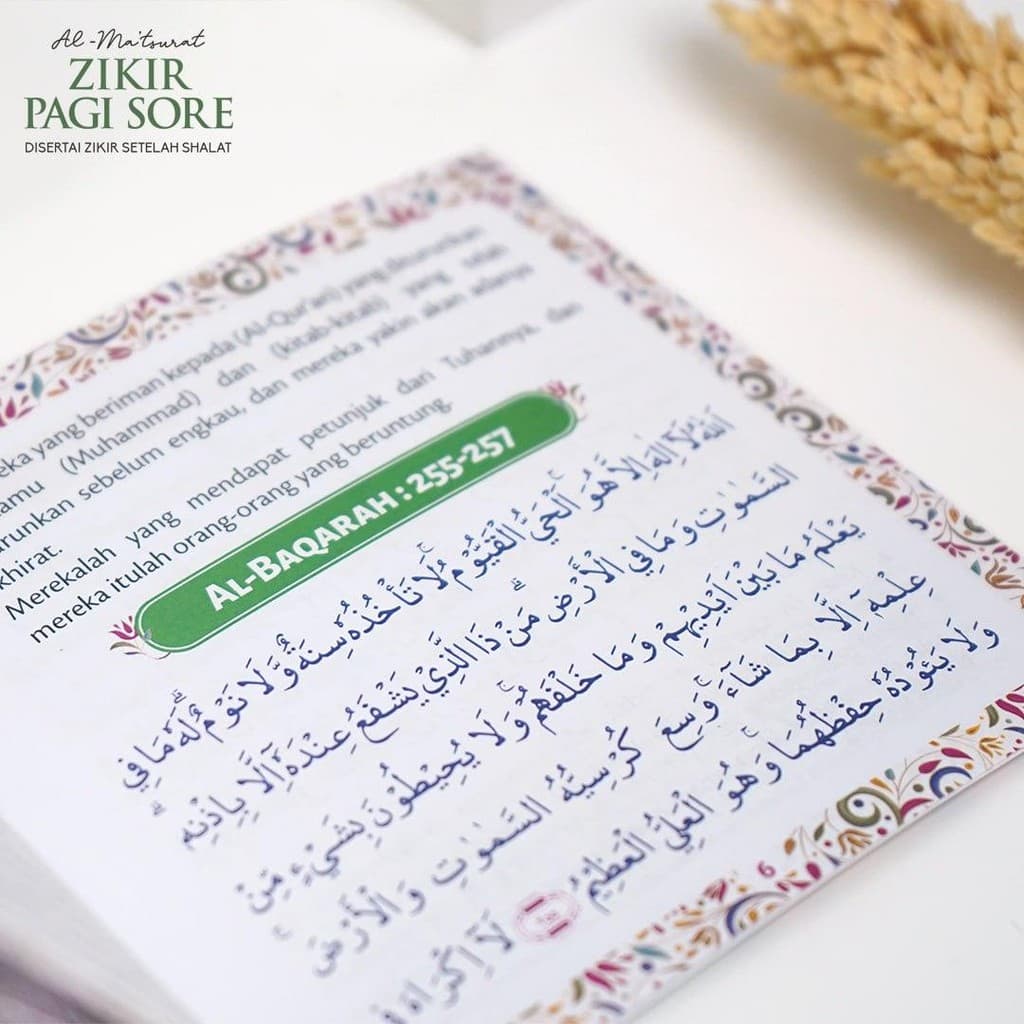 Al-Ma'tsurat
ZIKIR
PAGI SORE
DISERTAI ZIKIR SETELAH SHALAT
yang beriman kepada (Al-Qur'an) yang diturunkan
(Muhammad) dan (kitab-kitab) yang telah
sebelum engkau, dan mereka yakin akan adanya
Merekalah yang mendapat petunjuk dari Tuhannya, dan
mereka itulah orang-orang yang beruntung.
AL-BAQARAH : 255-257
اَللّٰهُ لَآ اِلٰهَ اِلَّا هُوَۚ اَلْحَيُّ الْقَيُّوْمُ ەۚ لَا تَأْخُذُهٗ سِنَةٌ وَّلَا نَوْمٌۗ لَهٗ مَا فِى
السَّمٰوٰتِ وَمَا فِى الْاَرْضِۗ مَنْ ذَا الَّذِيْ يَشْفَعُ عِنْدَهٗٓ اِلَّا بِاِذْنِهٖۗ
يَعْلَمُ مَا بَيْنَ اَيْدِيْهِمْ وَمَا خَلْفَهُمْۚ وَلَا يُحِيْطُوْنَ بِشَيْءٍ مِّنْ
عِلْمِهٖٓ اِلَّا بِمَا شَاۤءَۚ وَسِعَ كُرْسِيُّهُ السَّمٰوٰتِ وَالْاَرْضَۚ
وَلَا يَـُٔوْدُهٗ حِفْظُهُمَاۚ وَهُوَ الْعَلِيُّ الْعَظِيْمُ لَآ اِكْرَاهَ
6